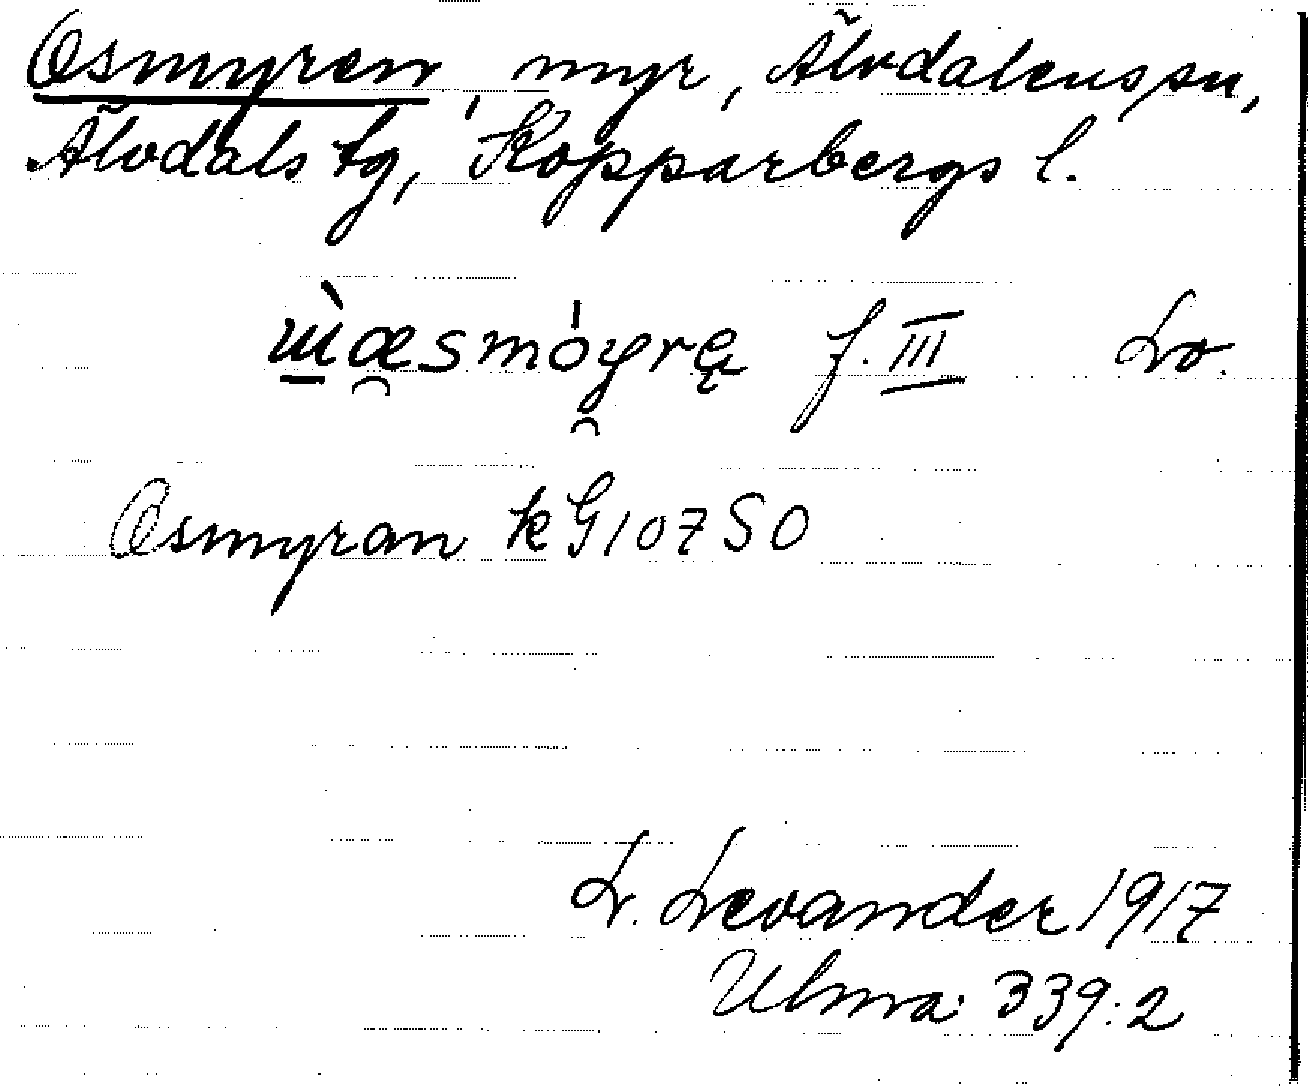 Osmyren, myr, Älvdalens sn,
Älvdals tg, Kopparbergs l.
f. III Lo.
Osmyran kG107SO
L. Levander 1917
Ulma: 339:2